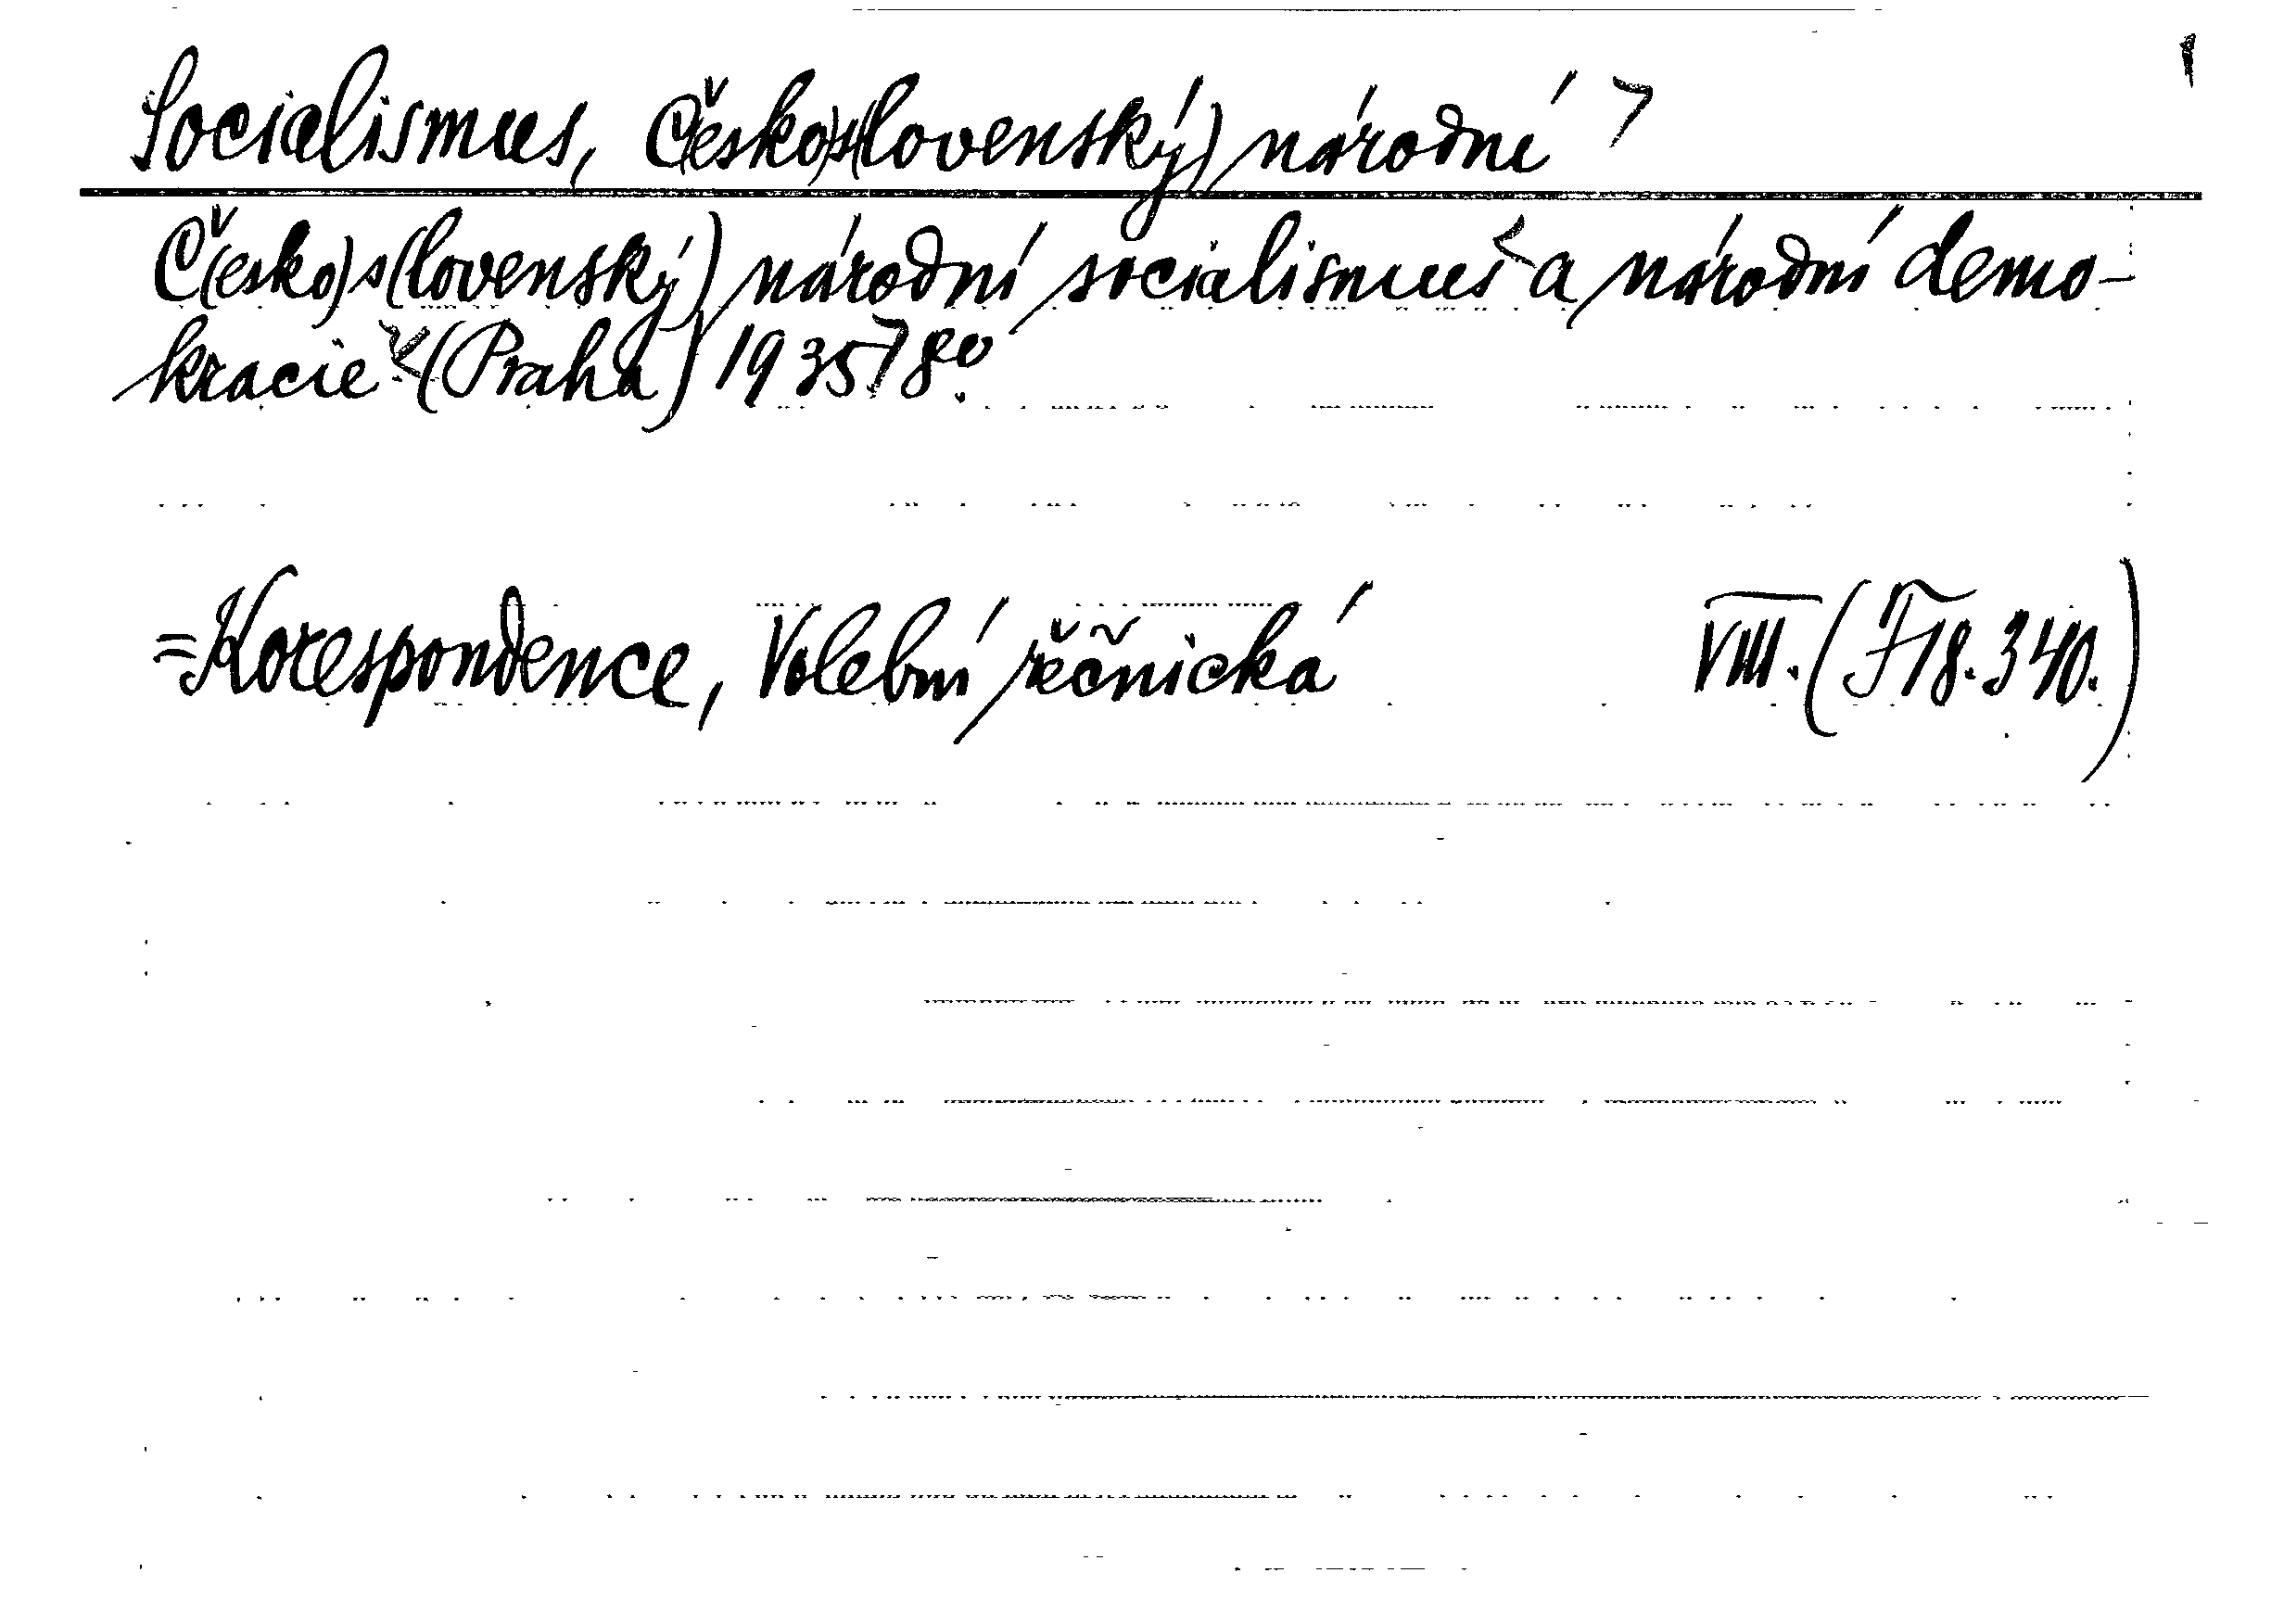 Socialismus, Č(esko)s(lovenský) národní 7
Č(esko)s(lovenský) národní socialismus a národní demo-
kracie (Praha) 1935 7 8º.
=Korespondence, Volební řečnická VIII. (F 18. 340.)